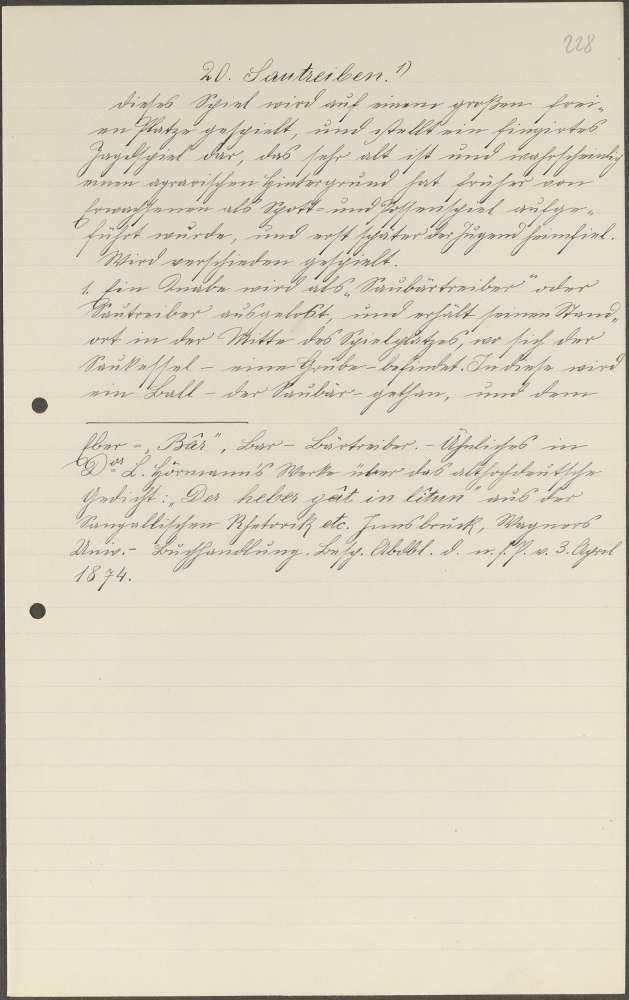 228
20. Sautreiben. 1)
Dieses Spiel wird auf einem großen frei-
en Platze gespielt, und stellt ein fingirtes
Jagdspiel dar, das sehr alt ist und wahrscheinlich
einen agrarischen Hintergrund hat früher von
Erwachsenen als Spott- und Possenspiel aufge-
führt wurde, und erst später der Jugend heimfiel.
Wird verschieden gespielt.
1. Ein Knabe wird als „Saubärtreiber" oder
Sautreiber ausgelost, und erhält seinen Stand-
ort in der Mitte des Spielplatzes, wo sich der
Saukessel - eine Grube - befindet. In diese wird
ein Ball - der Saubär - gethan, und dem
Eber - „Bär", Bar - Bärtreiber. - Ähnliches in
Dor L. Hörmann's Werke über das althochdeutsche
Gedicht: „Der heber gât in lîtun" aus der
Sangallischen Rhetorik etc. Innsbruck, Wagners
Univ.- Buchhandlung. Besp. Abdbl. d. n. f. P. v. 3. April
1874.